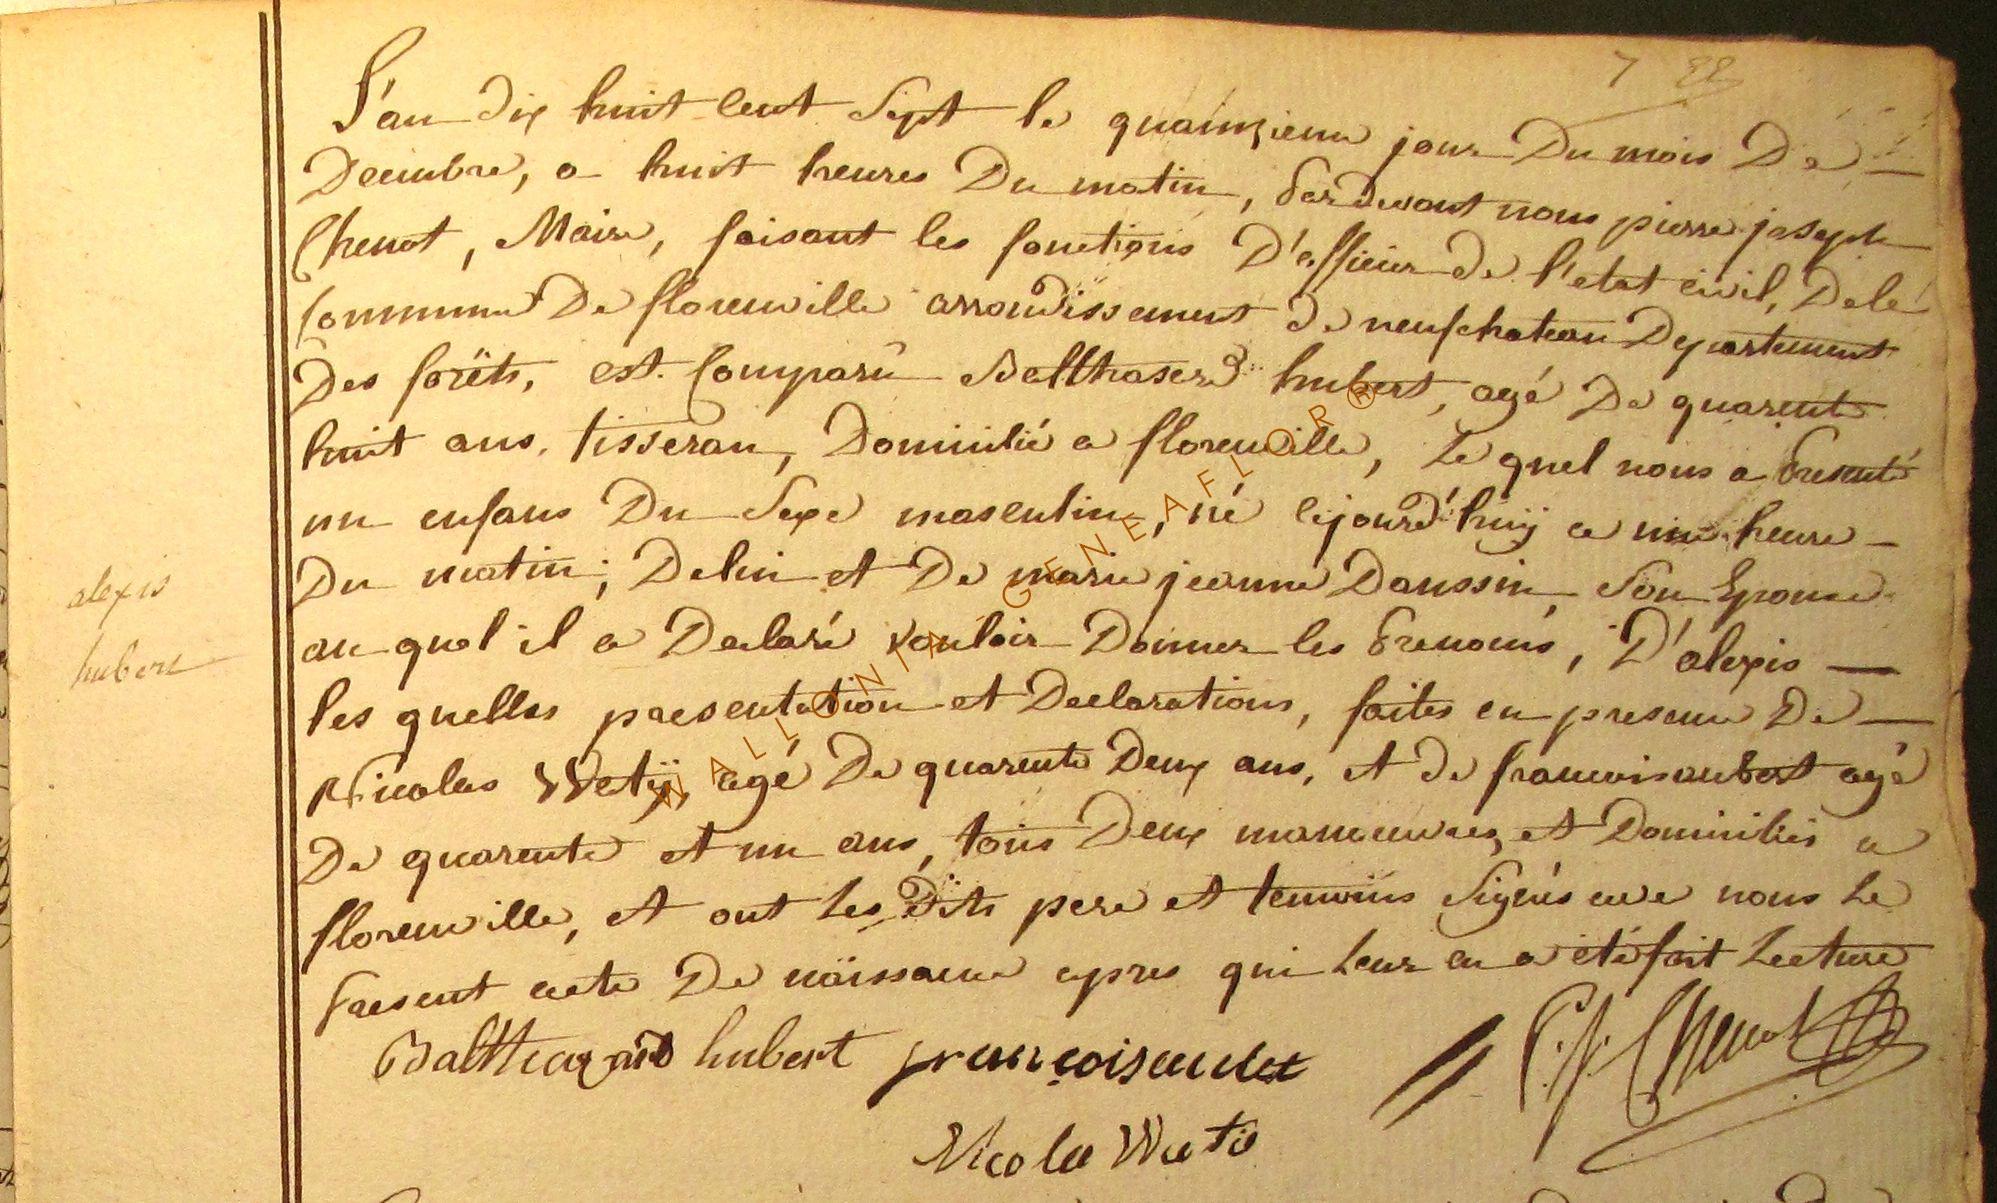 7 22
L'an dix huit cent Sept le quainzieme jour Du mois De
Decembre, a huit heures Du matin, Pardevant nous pierre joseph
Chenot, Maire, faisant les fonctions D'officier de l'etat civil, Dele
Commune De florenville arrondissement de neufchateau Departement
Des forêts, est Comparû Balthaserd hubert, agé De quarente
huit ans, tisseran, Domicilié a florenville, Le quel nous a Presenté
un enfans Du Sexe masculin, né cejourd'huÿ a une heure
Du matin; Deluy et De marie jeanne Daussin, Son Epouse
au quel il a Declaré vouloir Donner les Prenoms, D'alexis
les quelles presentation et Declarations, faites en presence De
Nicolas Wetÿ, agé De quarente Deux ans, et de francois aubert agé
De quarente et un ans, tous Deux manoeuvres, et Domiciliés a
florenville, et ont Les Dits pere et temoins Signés avec nous Le
Present acte De naissance apres qui Leur en a été fait Lecture
alexis
hubert
Balthazard hubert françois aubert P. J. Chenot
Nicola Weti
WALLONIA - GENEAFLOR®